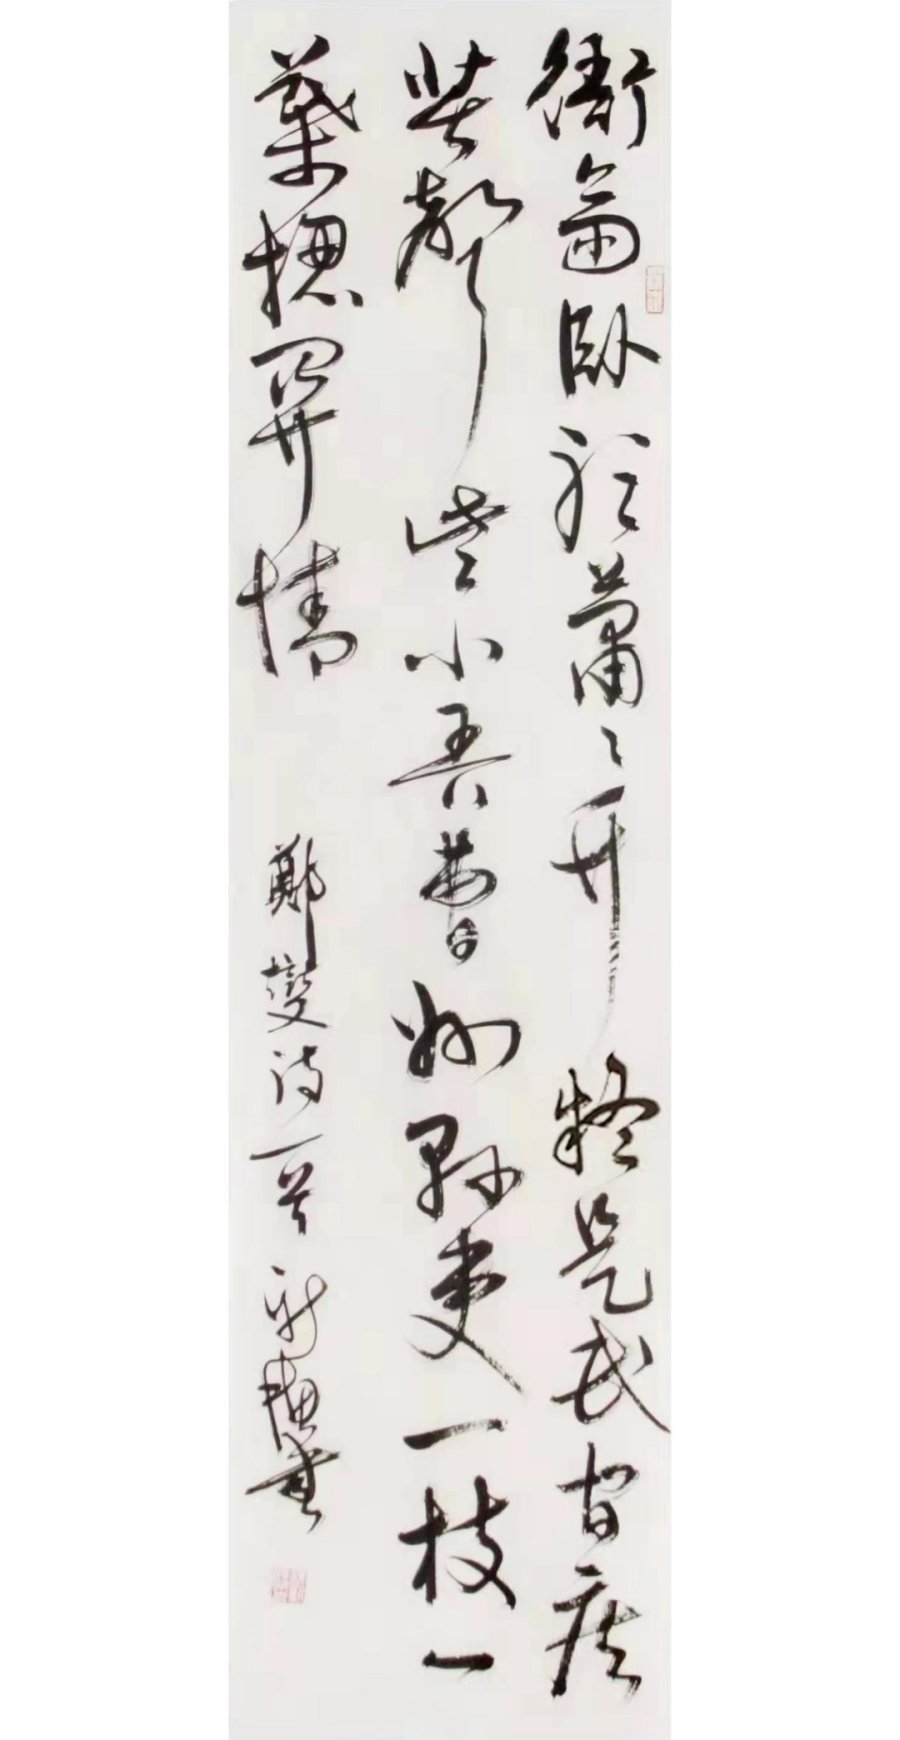 衙斋卧听萧々竹疑是民间疾
苦声些小吾曹州县吏一枝一
叶总关情
郑燮诗一首